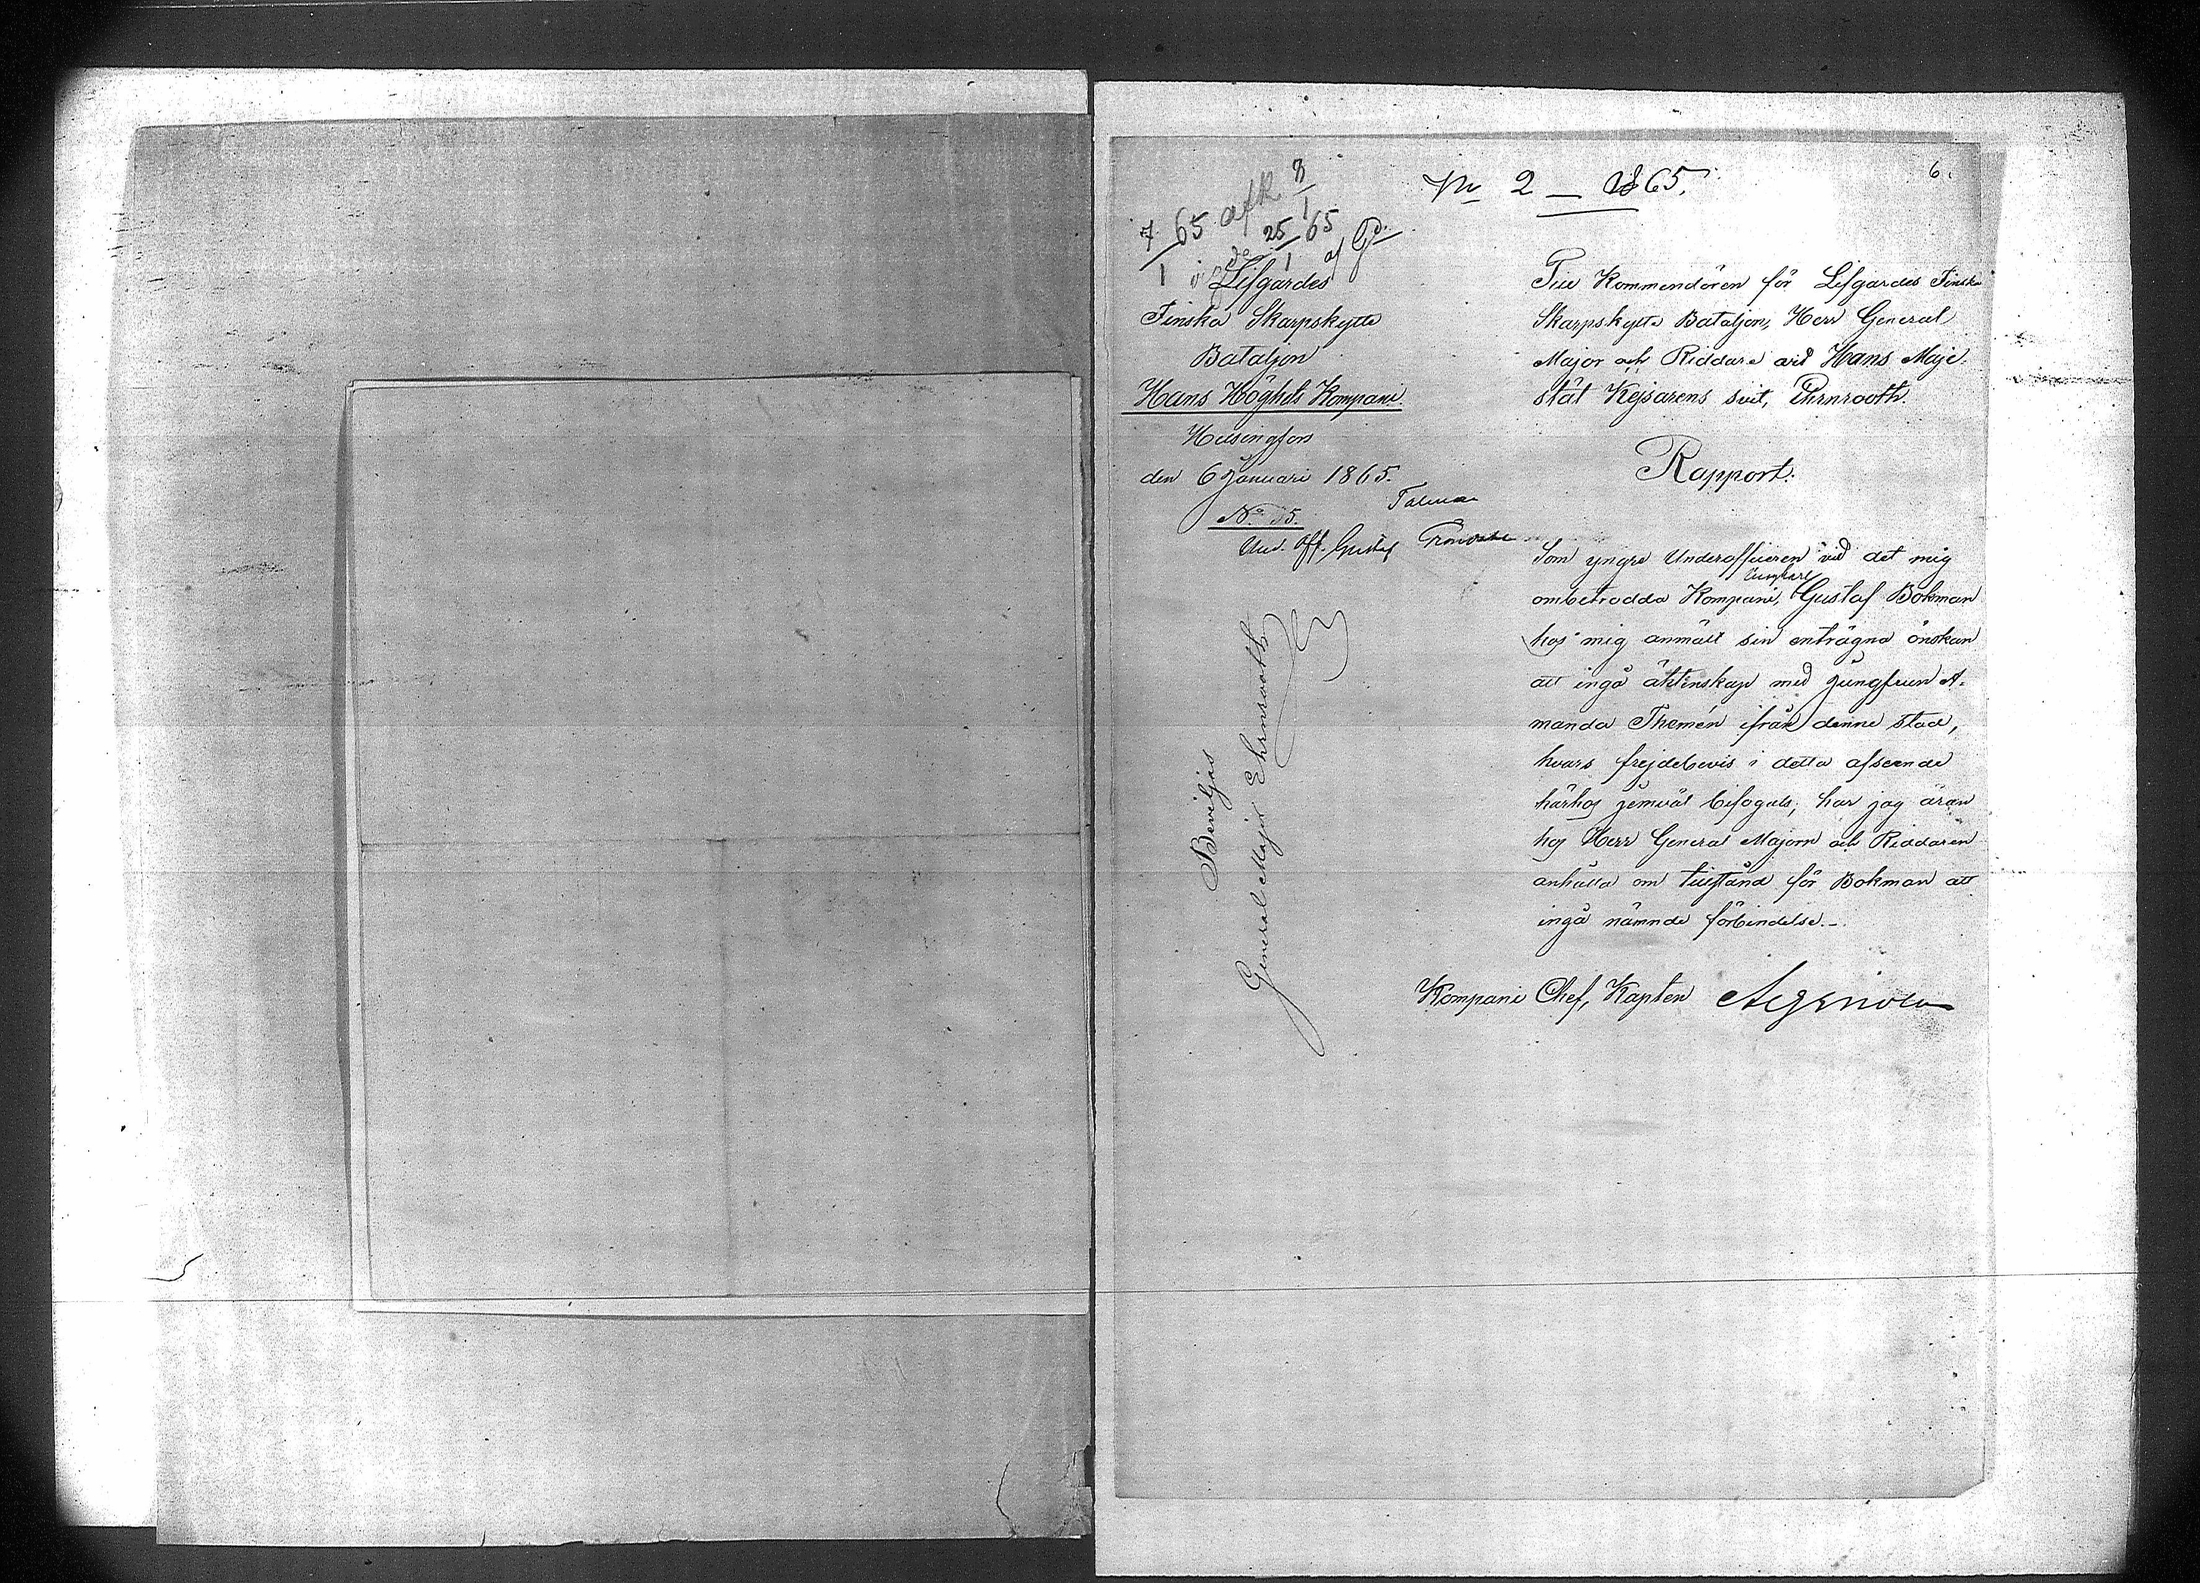 6.
No 2 — 1865.
7/1 65 afk 8/1
25/1 65 af
Lifgardes
Finska Skarpskytte
Bataljon
Hans Höghets Kompani
Helsingfors
den 6 Januari 1865.
No 5.
Und. Off. Gustaf
Till Kommendören för Lifgardes Finska
Skarpskytte Bataljon, Herr General
Major och Riddare vid Hans Maje
stät Kejsarens svit, Ehrnrooth.
Rapport.
Som yngre Underofficeren vid det mig
ombetrodda Kompani, ungkarl Gustaf Bokman
hos mig anmält sin enträgna önskan
att ingå äktenskap med Jungfrun A-
manda Themén ifrån denne stad,
hvars frejdebevis i detta afseende
härhos jemväl bifogats; har jag äran
hos Herr General Majorn och Riddaren
anhålla om tillstånd för Bokman att
ingå nämnde förbindelse.-
Kompani Chef, Kapten
Beviljas
General Major Ehrnrooth